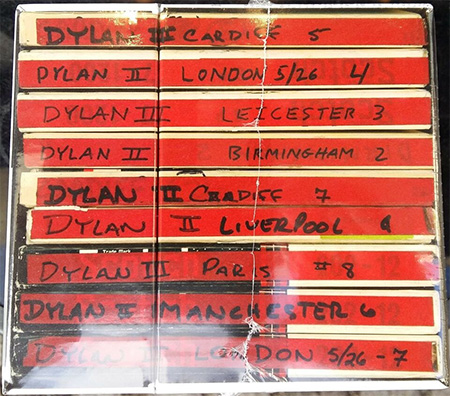 DYLAN III CARDIFF 5
DYLAN II LONDON 5/26 4
DYLAN III LEICESTER 3
DYLAN II BIRMINGHAM 2
DYLAN II CARDIFF 7
DYLAN II LIVERPOOL
Trade Mark
DYLAN III PARIS #8
DYLAN II MANCHESTER 6
DYLAN LONDON 5/26 - 7